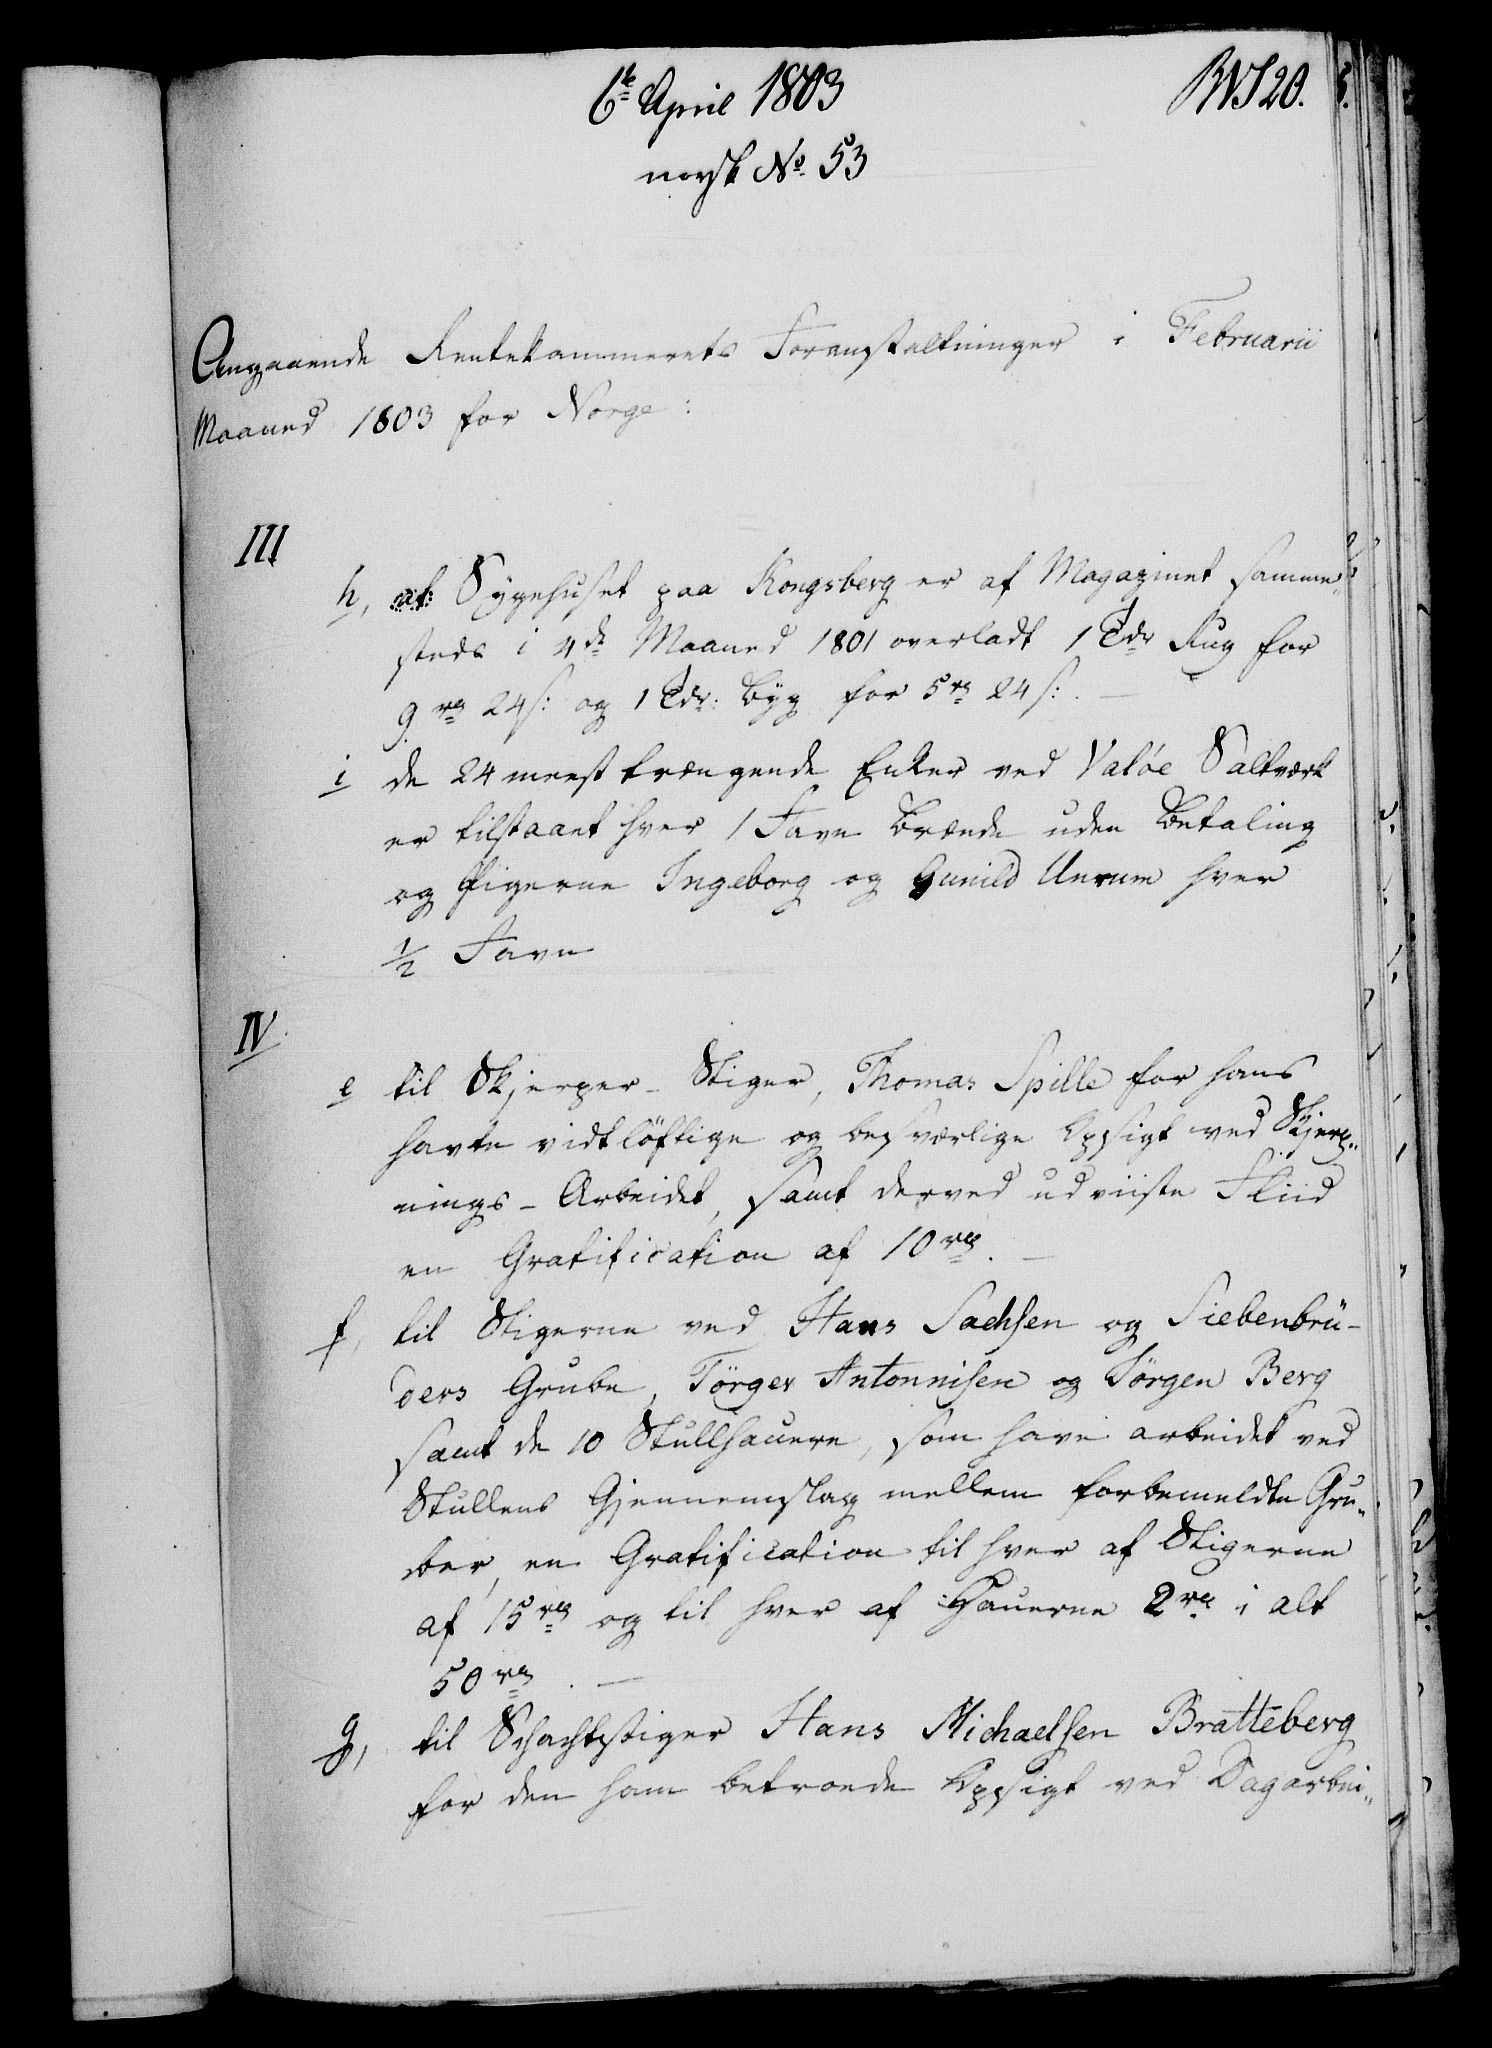 6te April 1803
BVS 20.
norsk No. 53
Angaaende Rentekammerets Foranstaltninger i Februarii
Maaned 1803 for Norge:
III
h, at Sygehuset paa Kongsberg er af Magazinet samme„
steds i 4de Maaned 1801 overladt 1 Tdr Rug for
9 rd 24 s: og 1 Tdr: Byg for 5 rd 24 s:. —
i de 24 meest trængende Enker ved Valøe Saltværk
er tilstaaet hver 1 Favn Brænde uden Betaling
og Pigerne Ingeborg og Gunild Unrum hver
1/2 Favn
IV
e til Skjerper-Stiger, Thomas Spille for hans
havte vidtlöftige og besværlige Opsigt ved Skjerp„
nings-Arbeidet, samt derved udviiste Fliid
en Gratification af 10 rd. —
f, til Stigerne ved Hans Sachsen og Siebenbrü-
ders Grube, Törger Antonnisen og Jörgen Berg
samt de 10 Stullhauere, som have arbeidet ved
Stullens Gjennemslag mellem forbemeldte Gru„
ber, en Gratification til hver af Stigerne
af 15 rd og til hver af Hauerne 2 rd i alt
50 rd. —
g, til Schachtstiger Hans Michaelsen Bratteberg
for den ham betroede Opsigt ved Dagarbei„